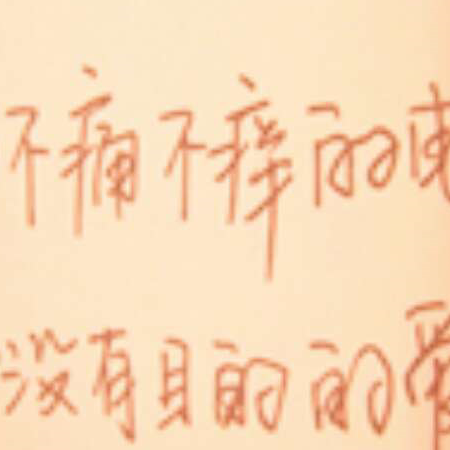 不痛不痒的
没有目的的